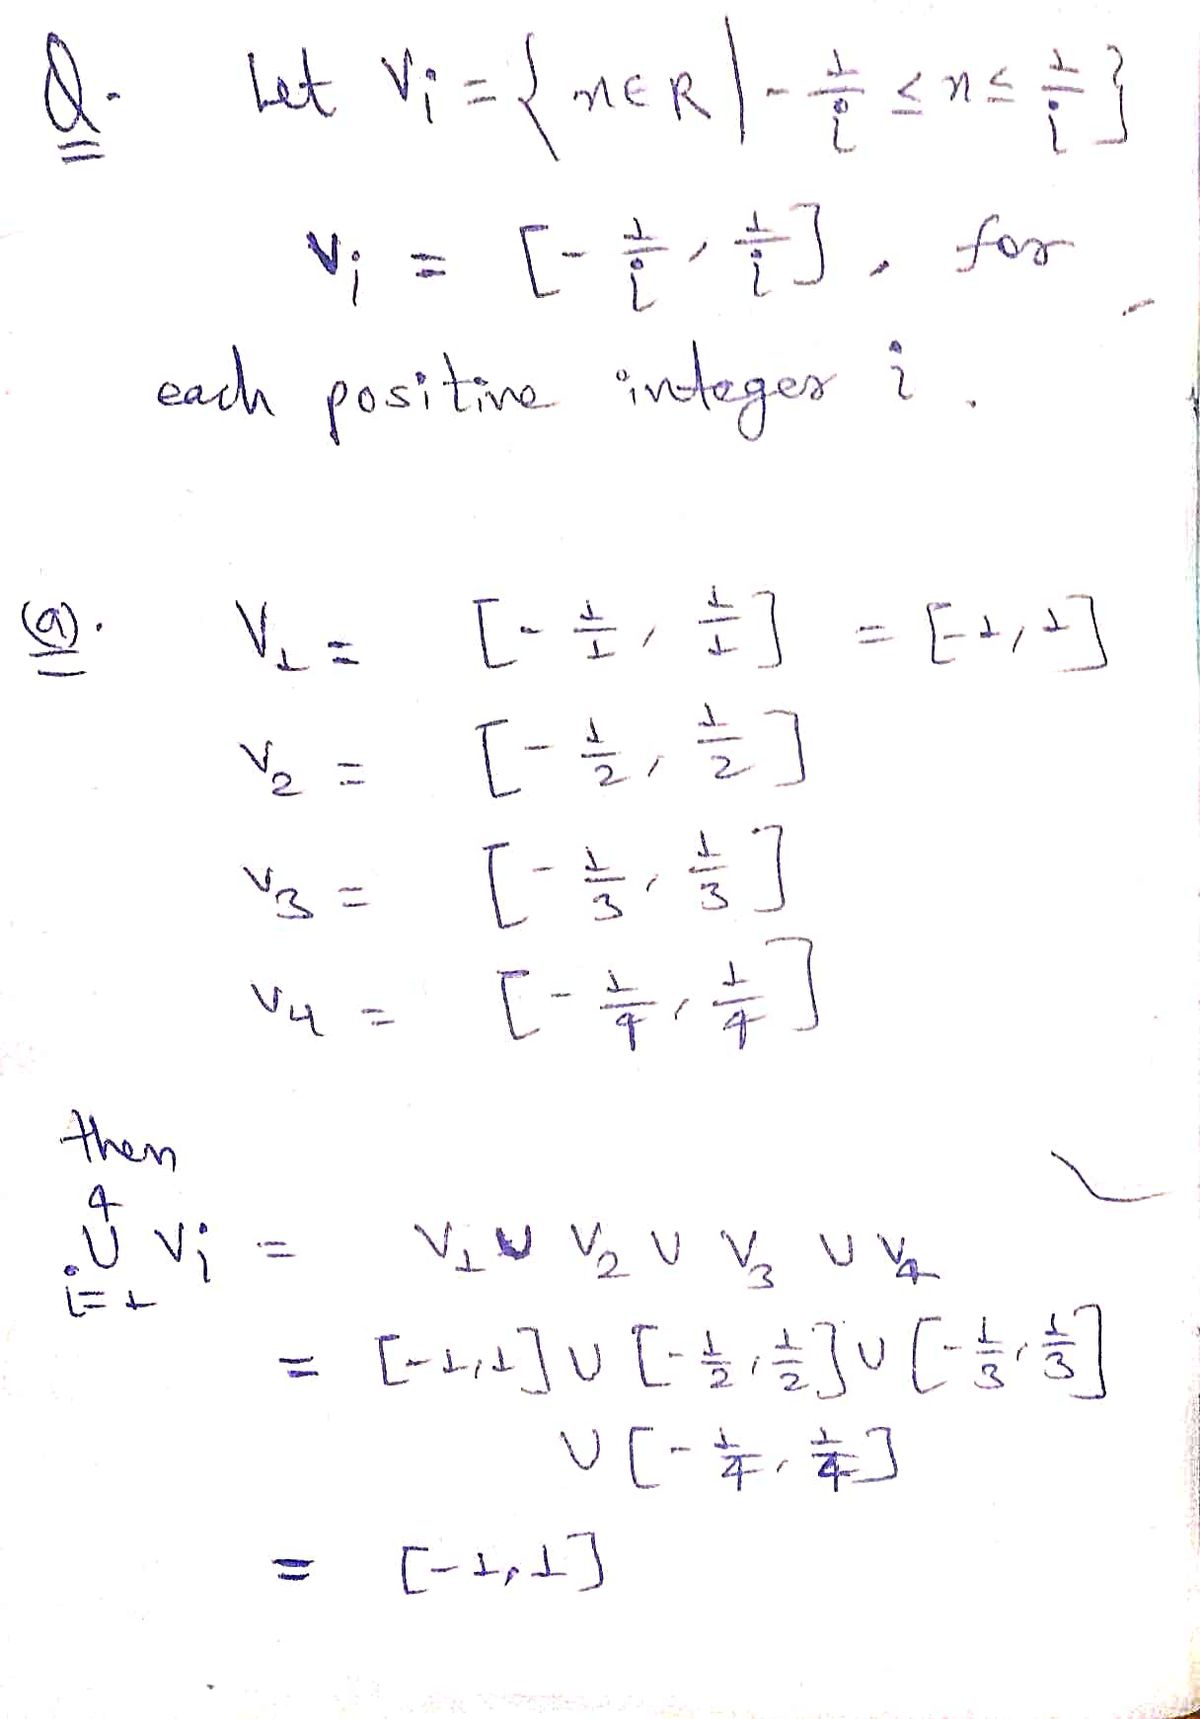 Q. Let Vi = { x ∈ R | - 1/i ≤ x ≤ 1/i }
Vi = [ - 1/i , 1/i ] , for
each positive integer i .
(a). V1 = [ - 1/1 , 1/1 ] = [-1, 1]
V2 = [ - 1/2 , 1/2 ]
V3 = [ - 1/3 , 1/3 ]
V4 = [ - 1/4 , 1/4 ]
then
4
∪ Vi = V1 ∪ V2 ∪ V3 ∪ V4
i=1
= [-1,1] ∪ [ - 1/2 , 1/2 ] ∪ [ - 1/3 , 1/3 ]
∪ [ - 1/4 , 1/4 ]
= [-1, 1]